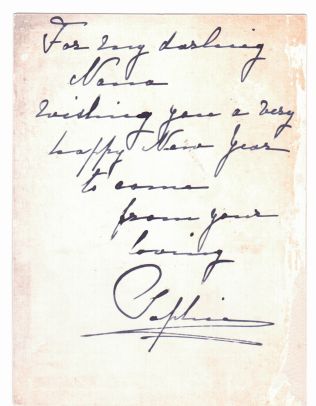 For my darling
Nona
wishing you a very
happy New Year
to come
from your
loving
Sophie